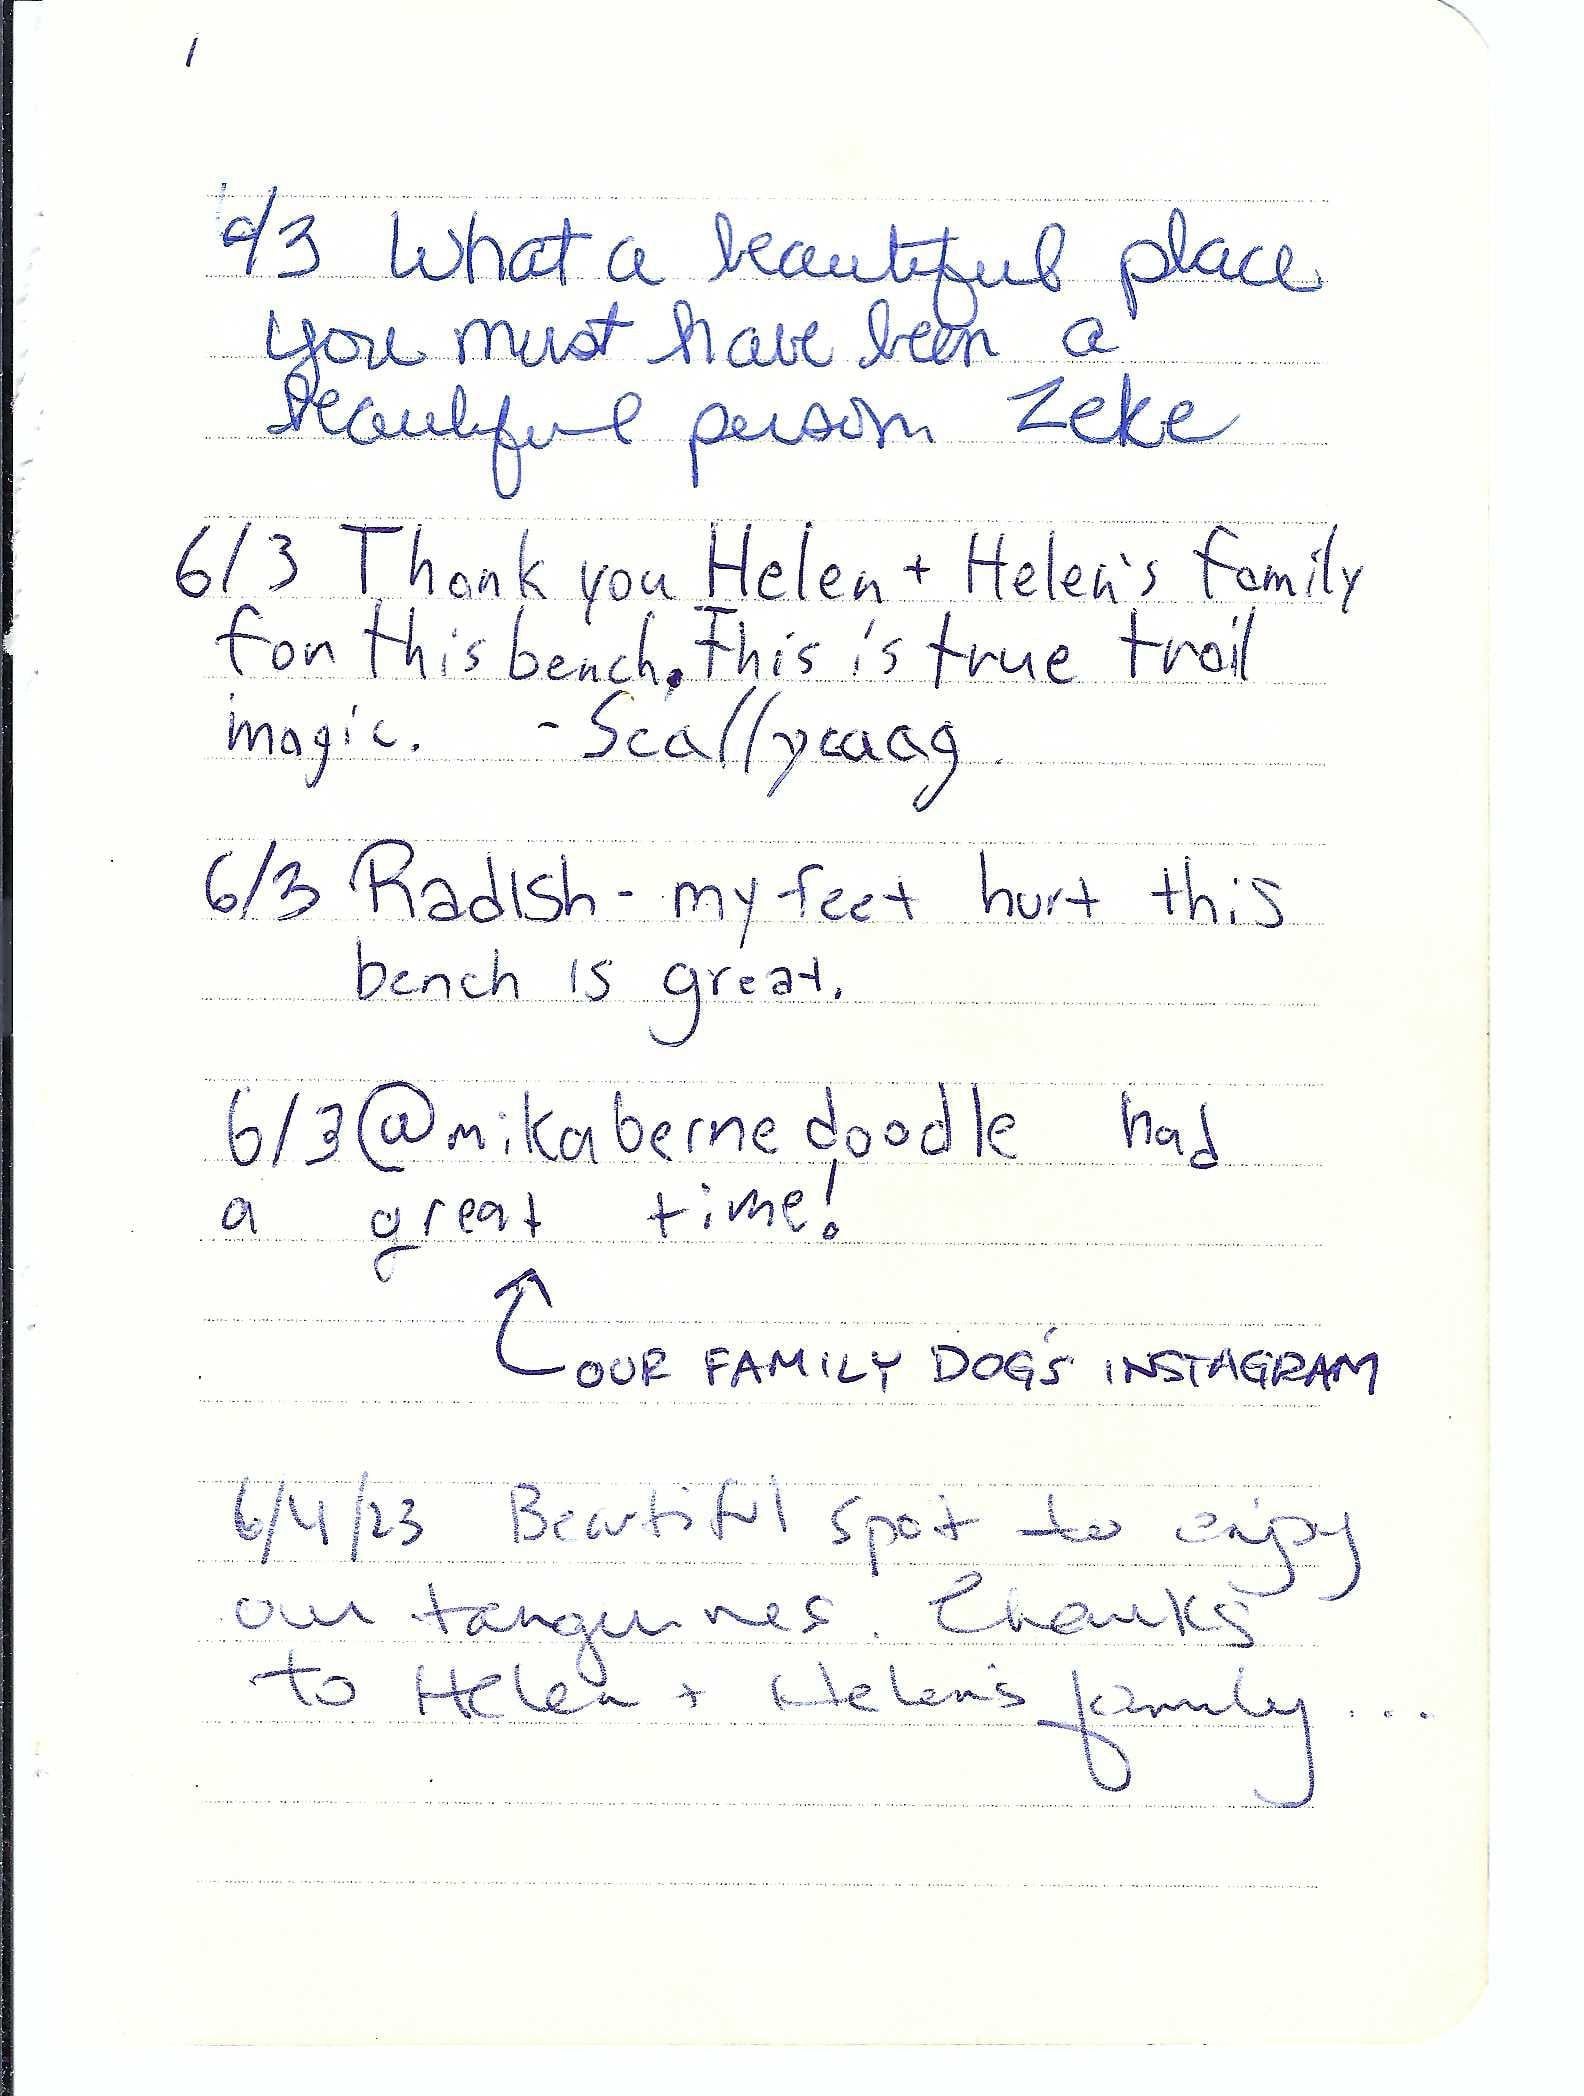 6/3 What a beautiful place
you must have been a
beautiful person Zeke
6/3 Thank you Helen + Helen's family
for this bench. This is true trail
magic. - Scallywag.
6/3 Radish - my feet hurt this
bench is great.
6/3 @mikabernedoodle had
a great time!
OUR FAMILY DOG'S INSTAGRAM
6/4/23 Beautiful spot to enjoy
our tangerines. Thanks
to Helen + Helen's family...